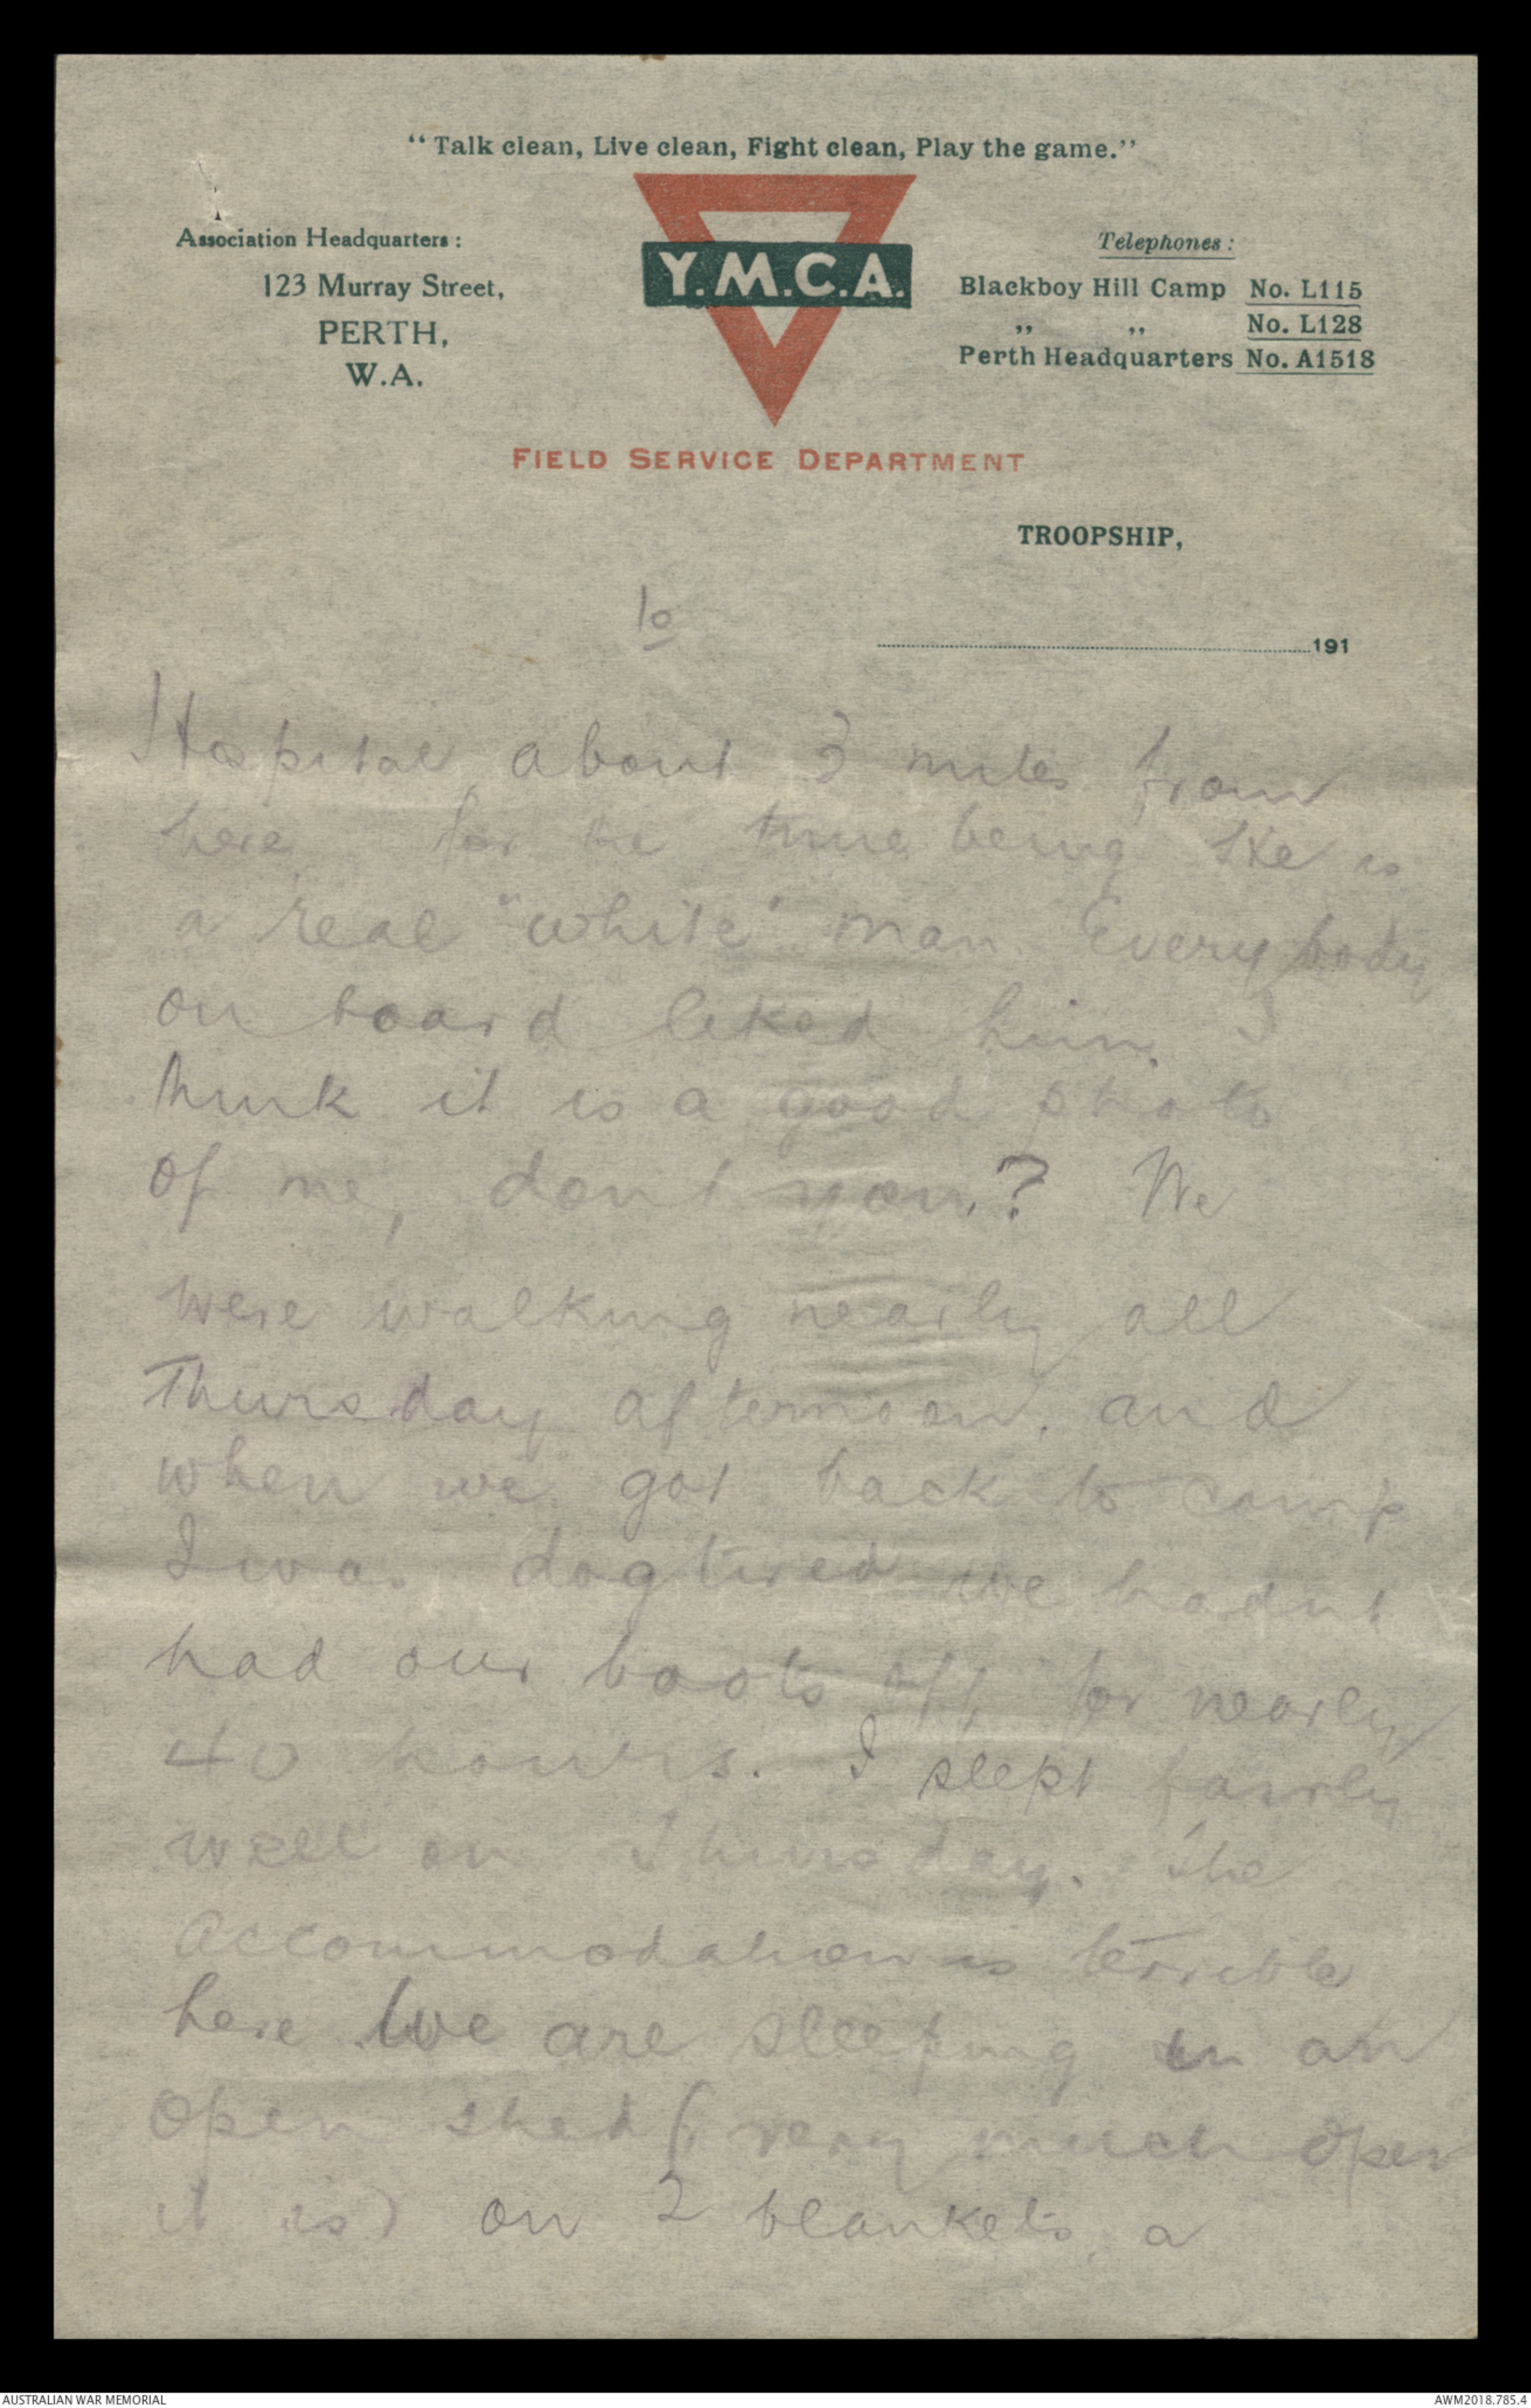 “Talk clean, Live clean, Fight clean, Play the game.”
Association Headquarters:
123 Murray Street,
PERTH,
W.A.
Y.M.C.A.
Telephones:
Blackboy Hill Camp No. L115
„ „ No. L128
Perth Headquarters No. A1518
FIELD SERVICE DEPARTMENT
TROOPSHIP,
10
191
Hospital about 3 miles from
here, for the time being He is
a real "white" man. Everybody
on board liked him. I
think it is a good photo
of me, don't you,? We
were walking nearly all
Thursday afternoon, and
when we got back to camp
I was dogtired we hadnt
had our boots off for nearly
40 hours. I slept fairly
well on Thursday. The
accommodation is terrible
here We are sleeping in an
open shed (very much open
it is) on 2 blankets, a
AUSTRALIAN WAR MEMORIAL
AWM2018.785.4